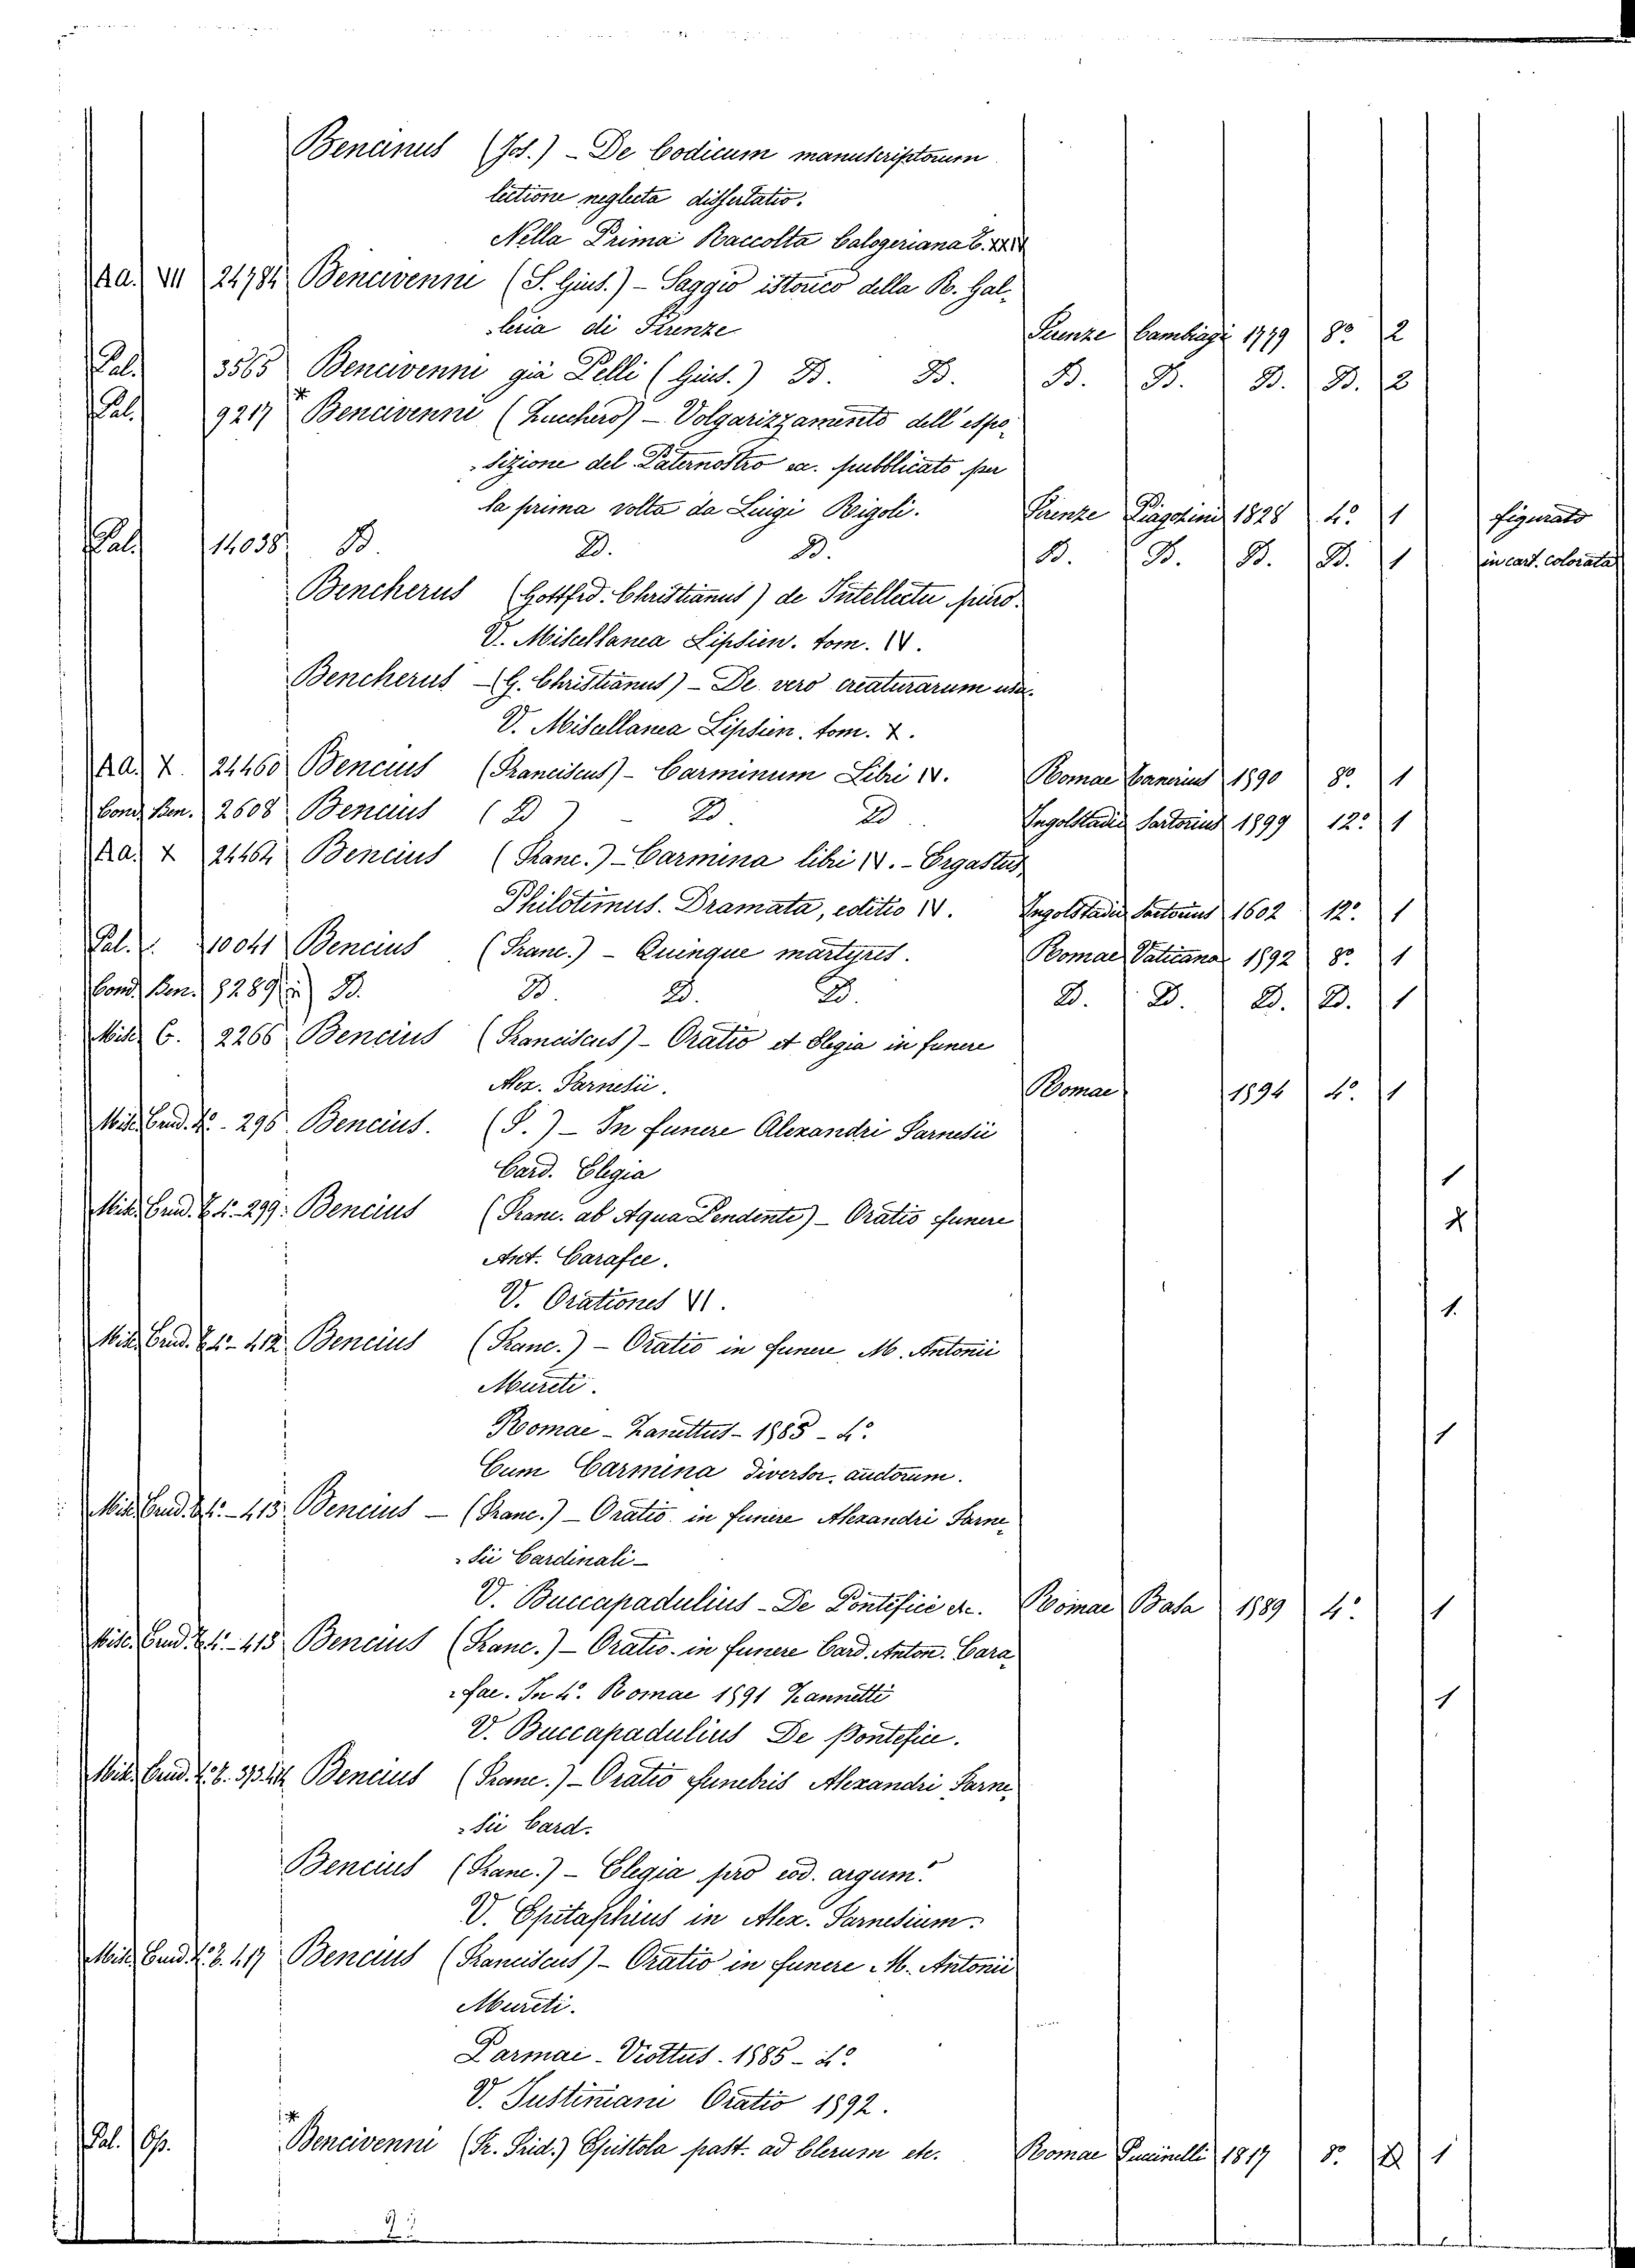 Bencinus (Jos.) - De Codicum manuscriptorum
lectione neglecta dissertatio.
Nella Prima Raccolta Calogeriana t. XXIV
Ad. VII 24784 Bencivenni (S. Gius.) - Saggio istorico della R. Gal-
leria di Firenze Firenze Cambiagi 1779 8º 2
Pal. 3565 Bencivenni già Pelli (Gius.) D. D. D. D. D. D. 2
Pal. 9217 Bencivenni (Zucchero) - Volgarizzamento dell' espo-
sizione del Paternostro ec. pubblicato per
la prima volta da Luigi Rigoli. Firenze Piazzini 1828 4º 1 figurato
Pal. 14038 D D. D. D. D. D. D. 1 in cart. colorata
Bencherus (Gottfrd. Christianus) de Intellectu puro.
V. Miscellanea Lipsien. tom. IV.
Bencherus - (G. Christianus) - De vero creaturarum usu.
V. Miscellanea Lipsien. tom. X.
Ad. X. 24460 Bencius (Franciscus) - Carminum Libri IV. Romae 1590 8º 1
Cond. Ben. 2608 Bencius (D) - D D Ingolstadii Sartorius 1599 12º 1
Ad. X 24464 Bencius (Franc.) - Carmina libri IV. - Ergastus
Philotimus. Dramata, editio IV. Ingolstadii Sartorius 1602 12º 1
Pal. 10041 Bencius (Franc.) - Quinque martyres. Romae Vaticana 1592 8º 1
Cond. Ben. 3289 D. D. D. D. D. D. D. D. 1
Misc. C. 2266 Bencius (Franciscus) - Oratio et Elegia in funere
Alex. Farnesii. Romae 1594 4º 1
Misc. Cend. 4º - 296 Bencius. (F.) - In funere Alexandri Farnesii
Card. Elegia 1
Misc. Cend. E. 4º - 299: Bencius (Franc. ab Aqua Pendente) - Oratio funere
Ant. Carafee.
V. Orationes VI. 1
Misc. Cend. E. 4º - 412 Bencius (Franc.) - Oratio in funere M. Antonii
Mureti.
Romae - Zanettus - 1585 - 4º 1
Cum Carmina diversor. auctorum.
Misc. Cend. E. 4º - 413 Bencius - (Franc.) - Oratio in funere Alexandri Farne-
sii Cardinali -
V. Buccapadulius - De Pontifici etc. Romae Basa 1589 4º 1
Misc. Cend. E. 4º - 415 Bencius (Franc.) - Oratio in funere Card. Anton. Cara
fae. In 4º. Romae 1591 Zannetti 1
V. Buccapadulius De Pontefice.
Misc. Cend. Bencius (Franc.) - Oratio funebris Alexandri Farne-
sii Card.
Bencius (Franc.) - Elegia pro eod. argum.º
V. Epitaphius in Alex. Farnesium.
Misc. Cend. 417 Bencius (Franciscus) - Oratio in funere M. Antonii
Mureti.
Parmai - Viottus. 1585 - 4º
V. Justiniani Oratio 1592.
Pal. Op. Bencivenni (Fr. Frid.) Epistola past. ad Clerum etc. Romae Puccinelli 1817 8º 1